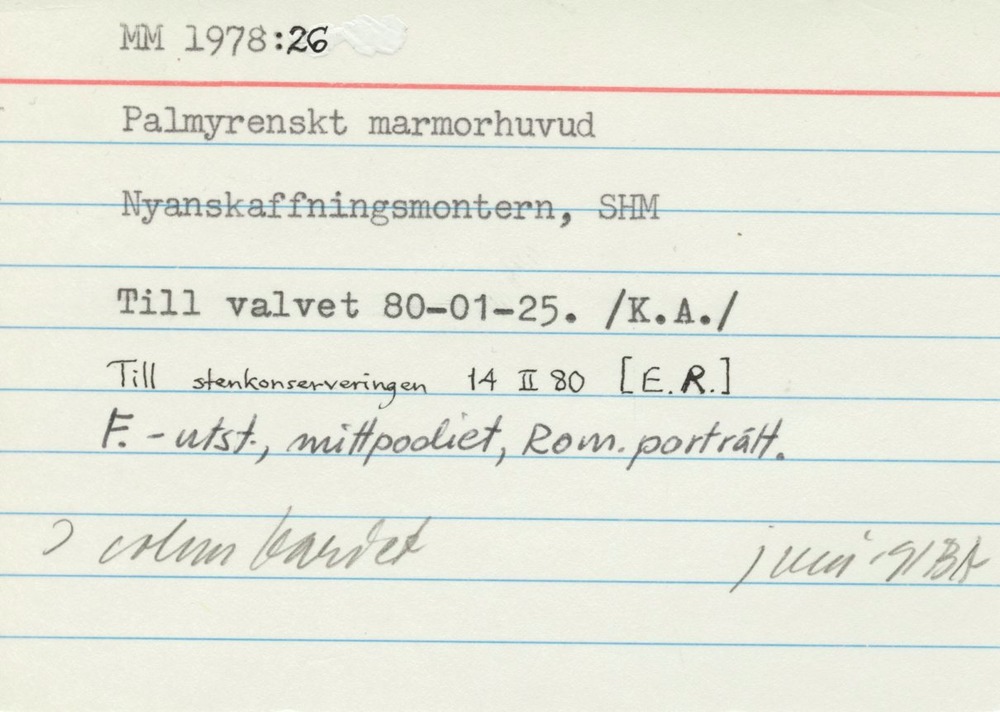 MM 1978:26
Palmyrenskt marmorhuvud
Nyanskaffningsmontern, SHM
Till valvet 80-01-25. /K.A./
Till stenkonserveringen 14 II 80 [E.R.]
F.-utst., mittpodiet, Rom. porträtt.
juni -91 BA